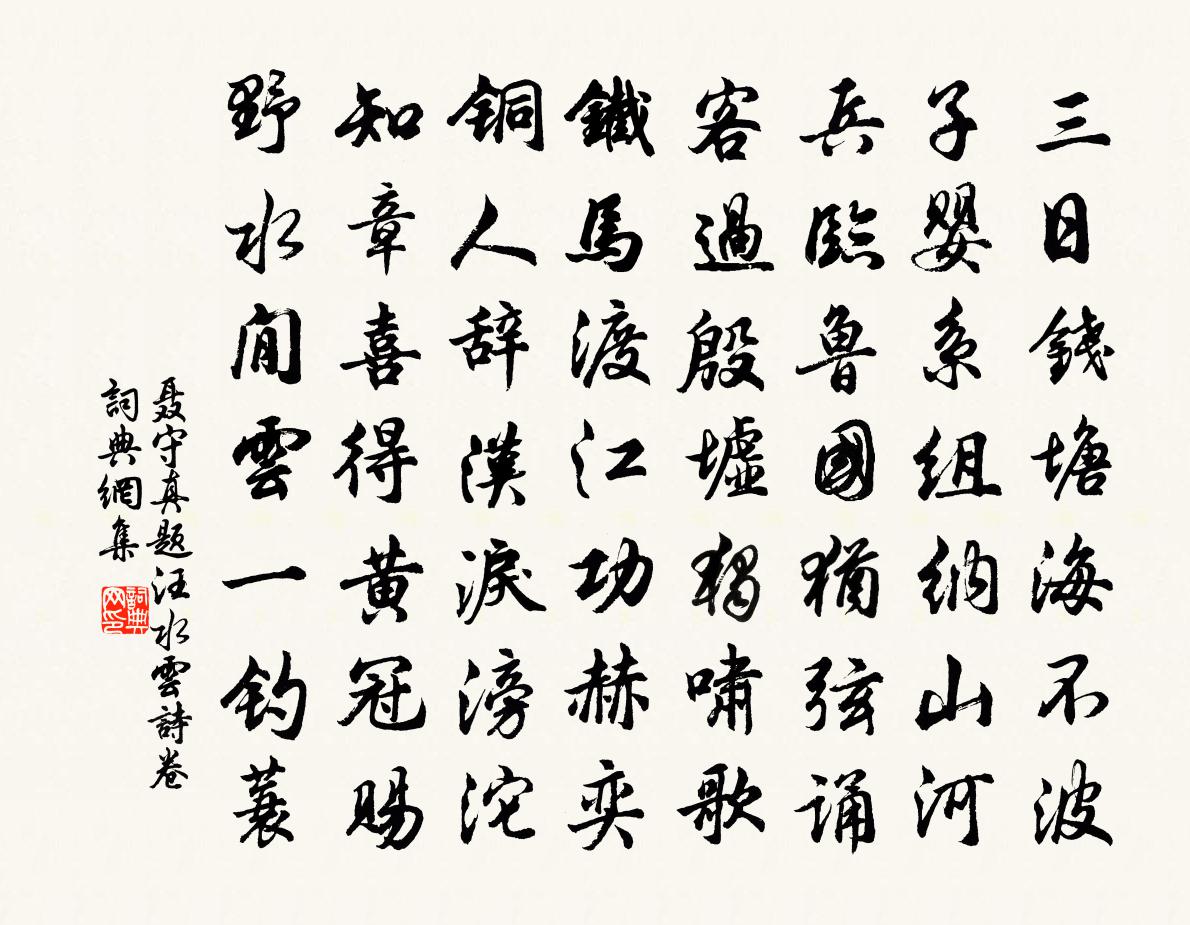 三日錢塘海不波
子嬰系組納山河
兵臨魯國猶弦誦
客過殷墟獨嘯歌
鐵馬渡江功赫奕
銅人辞漢淚滂沱
知章喜得黃冠賜
野水閒雲一釣蓑
聂守真题汪水雲詩卷
詞典網集
詞典网印